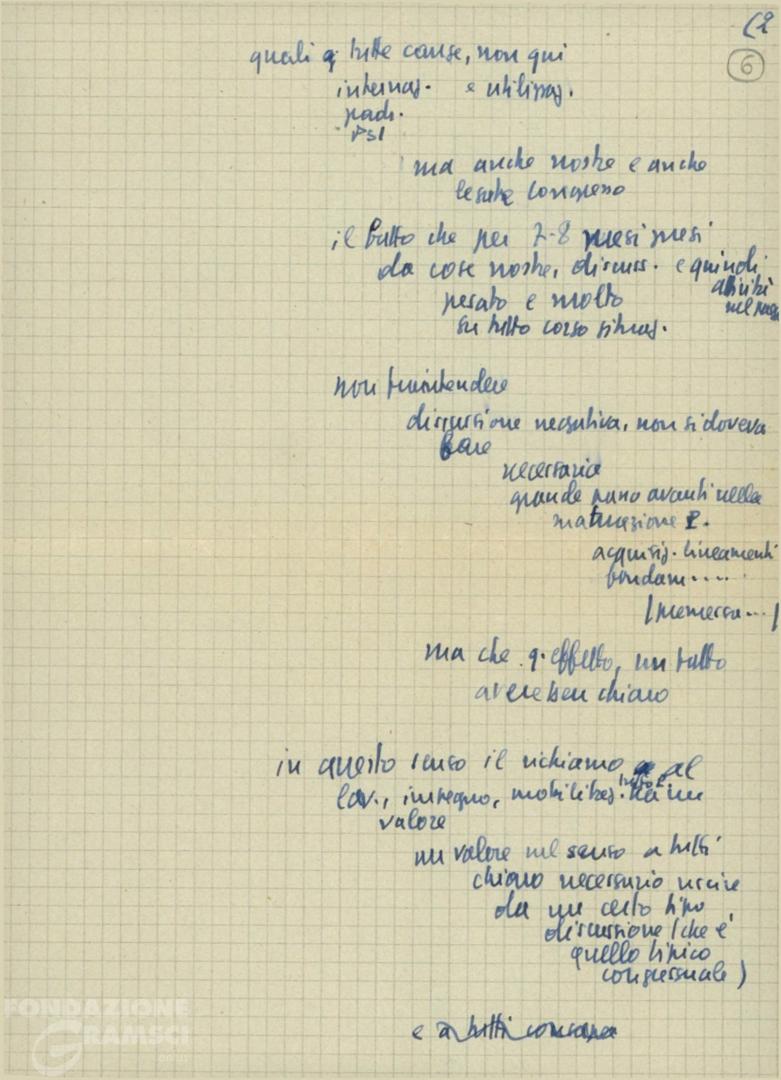 (2
6
quali q tutte cause, non qui
internaz. e utilizzaz.
padr.
PSI
ma anche nostre e anche
legate congresso
il fatto che per 7-8 mesi mesi
da cose nostre, discuss. e quindi
attività
pesato e molto
nel paese
su tutto corso situaz.
non fraintendere
discussione negativa, non si doveva
fare
necessaria
grande passo avanti nella
maturazione P.
acquisiz. lineamenti
fondam.....
(
...)
ma che q. effetto, un fatto
avere ben chiaro
in questo senso il richiamo al
lav., impegno, mobilitaz. ha un
valore
un valore nel senso a tutti
chiaro necessario uscire
da un certo tipo
discussione (che è
quello tipico
congressuale)
e a tutti
FONDAZIONE
GRAMSCI